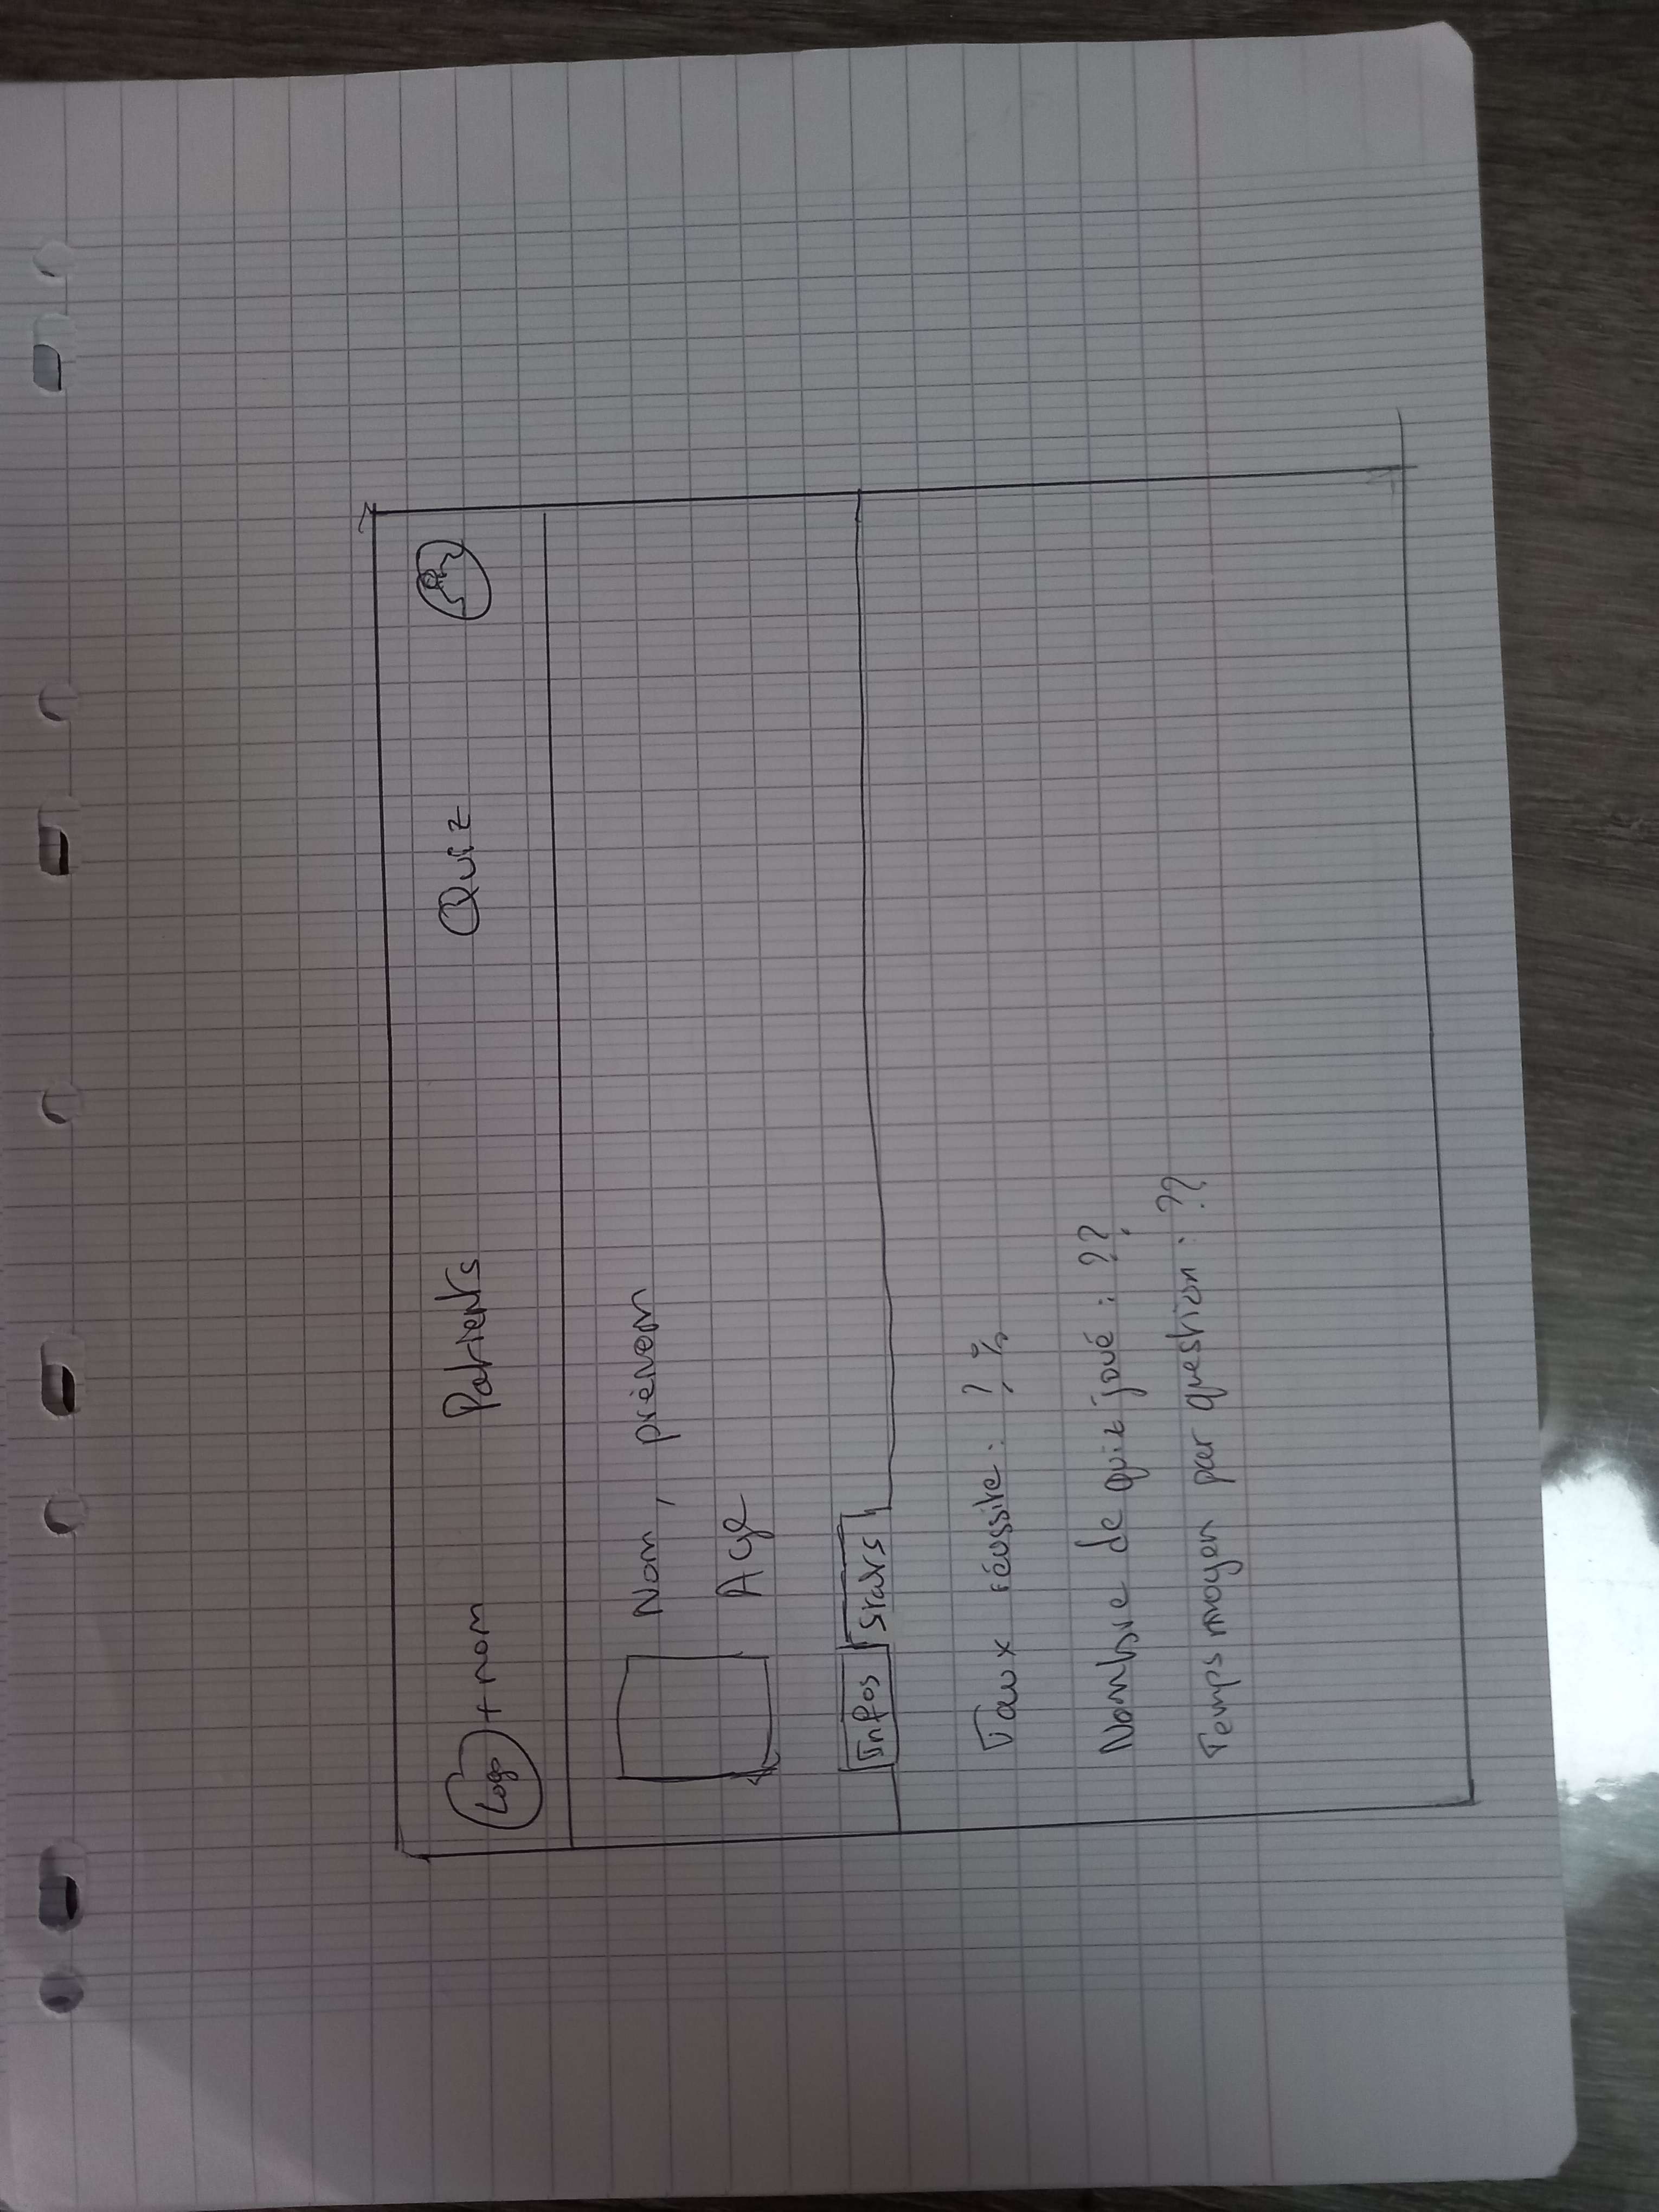 Logo + nom Patients Quiz
Nom, prénom
Age
Infos Stats
Taux réussite : ? %
Nombre de quiz joué : ??
Temps moyen par question : ??